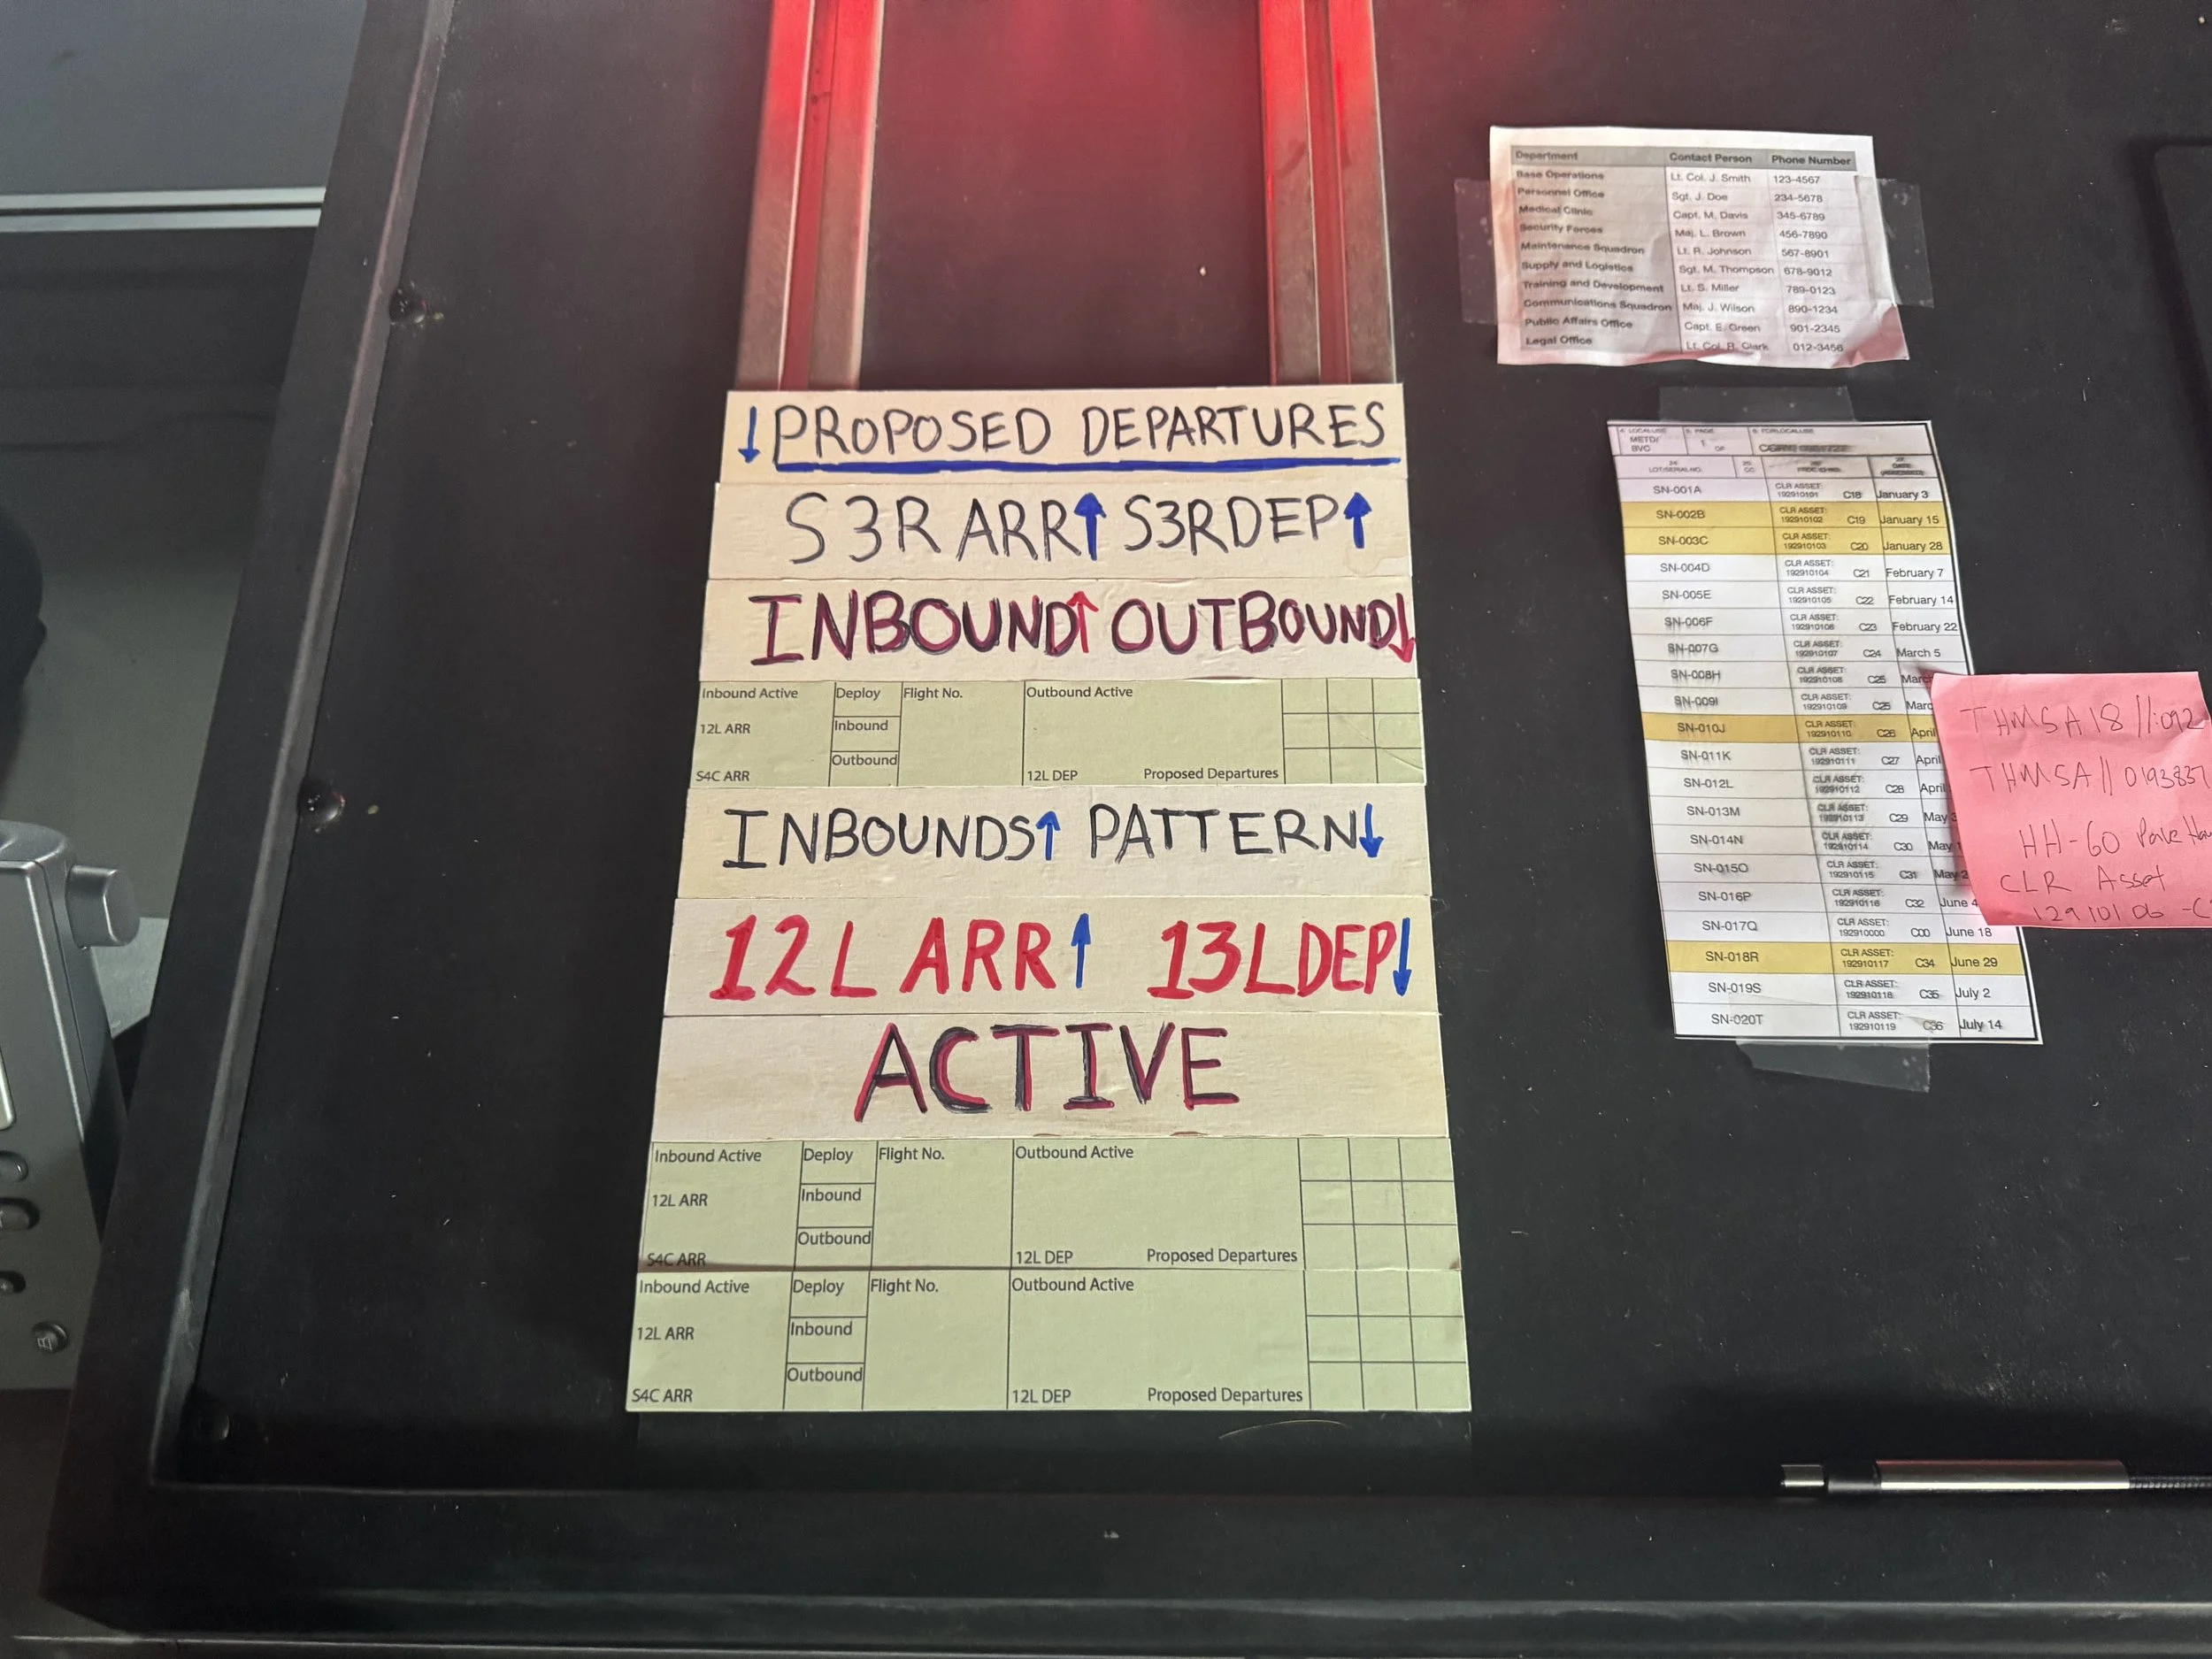 ↓PROPOSED DEPARTURES
S3R ARR↑ S3RDEP↑
INBOUND↑ OUTBOUND↓
Inbound Active Deploy Flight No. Outbound Active
12L ARR Inbound
Outbound
S4C ARR 12L DEP Proposed Departures
INBOUNDS↑ PATTERN↓
12L ARR↑ 13LDEP↓
ACTIVE
Inbound Active Deploy Flight No. Outbound Active
12L ARR Inbound
Outbound
S4C ARR 12L DEP Proposed Departures
Inbound Active Deploy Flight No. Outbound Active
12L ARR Inbound
Outbound
S4C ARR 12L DEP Proposed Departures
Department Contact Person Phone Number
Base Operations Lt. Col. J. Smith 123-4567
Personnel Office Sgt. J. Doe 234-5678
Medical Clinic Capt. M. Davis 345-6789
Security Forces Maj. L. Brown 456-7890
Maintenance Squadron Lt. R. Johnson 567-8901
Supply and Logistics Sgt. M. Thompson 678-9012
Training and Development Lt. S. Miller 789-0123
Communications Squadron Maj. J. Wilson 890-1234
Public Affairs Office Capt. E. Green 901-2345
Legal Office Lt. Col. B. Clark 012-3456
METD/
BVC 1 OF
LOT/SERIAL NO.
SN-001A CLR ASSET: 192910101 C18 January 3
SN-002B CLR ASSET: 192910102 C19 January 15
SN-003C CLR ASSET: 192910103 C20 January 28
SN-004D CLR ASSET: 192910104 C21 February 7
SN-005E CLR ASSET: 192910105 C22 February 14
SN-006F CLR ASSET: 192910106 C23 February 22
SN-007G CLR ASSET: 192910107 C24 March 5
SN-008H CLR ASSET: 192910108 C25 Marc
SN-009I CLR ASSET: 192910109 C25 Marc
SN-010J CLR ASSET: 192910110 C26 April
SN-011K CLR ASSET: 192910111 C27 April
SN-012L CLR ASSET: 192910112 C28 April
SN-013M CLR ASSET: 192910113 C29 May
SN-014N CLR ASSET: 192910114 C30 May
SN-015O CLR ASSET: 192910115 C31 May 2
SN-016P CLR ASSET: 192910116 C32 June 4
SN-017Q CLR ASSET: 192910000 C00 June 18
SN-018R CLR ASSET: 192910117 C34 June 29
SN-019S CLR ASSET: 192910118 C35 July 2
SN-020T CLR ASSET: 192910119 C36 July 14
THMSA18//:092
THMSA//0193837
HH-60
CLR Asset
12910106 -C